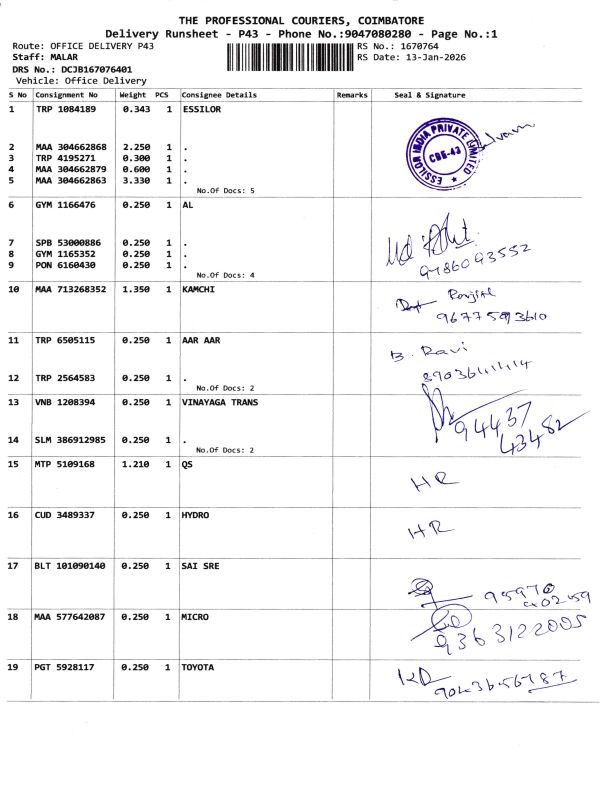 THE PROFESSIONAL COURIERS, COIMBATORE
Delivery Runsheet - P43 - Phone No.:9047080280 - Page No.:1
Route: OFFICE DELIVERY P43 RS No.: 1670764
Staff: MALAR RS Date: 13-Jan-2026
DRS No.: DCJB167076401
Vehicle: Office Delivery
S No Consignment No Weight PCS Consignee Details Remarks Seal & Signature
1 TRP 1084189 0.343 1 ESSILOR
ESSILOR INDIA PRIVATE LIMITED
CBE-43
2 MAA 304662868 2.250 1 .
3 TRP 4195271 0.300 1 .
4 MAA 304662879 0.600 1 .
5 MAA 304662863 3.330 1 .
No.Of Docs: 5
6 GYM 1166476 0.250 1 AL
7 SPB 53000886 0.250 1 .
8 GYM 1165352 0.250 1 .
9 PON 6160430 0.250 1 .
9786093552
No.Of Docs: 4
10 MAA 713268352 1.350 1 KAMCHI
9677593610
11 TRP 6505115 0.250 1 AAR AAR
B. Ravi
12 TRP 2564583 0.250 1 .
No.Of Docs: 2
13 VNB 1208394 0.250 1 VINAYAGA TRANS
94437
43482
14 SLM 386912985 0.250 1 .
No.Of Docs: 2
15 MTP 5109168 1.210 1 QS
HR
16 CUD 3489337 0.250 1 HYDRO
HR
17 BLT 101090140 0.250 1 SAI SRE
95970
40259
18 MAA 577642087 0.250 1 MICRO
9363122005
19 PGT 5928117 0.250 1 TOYOTA